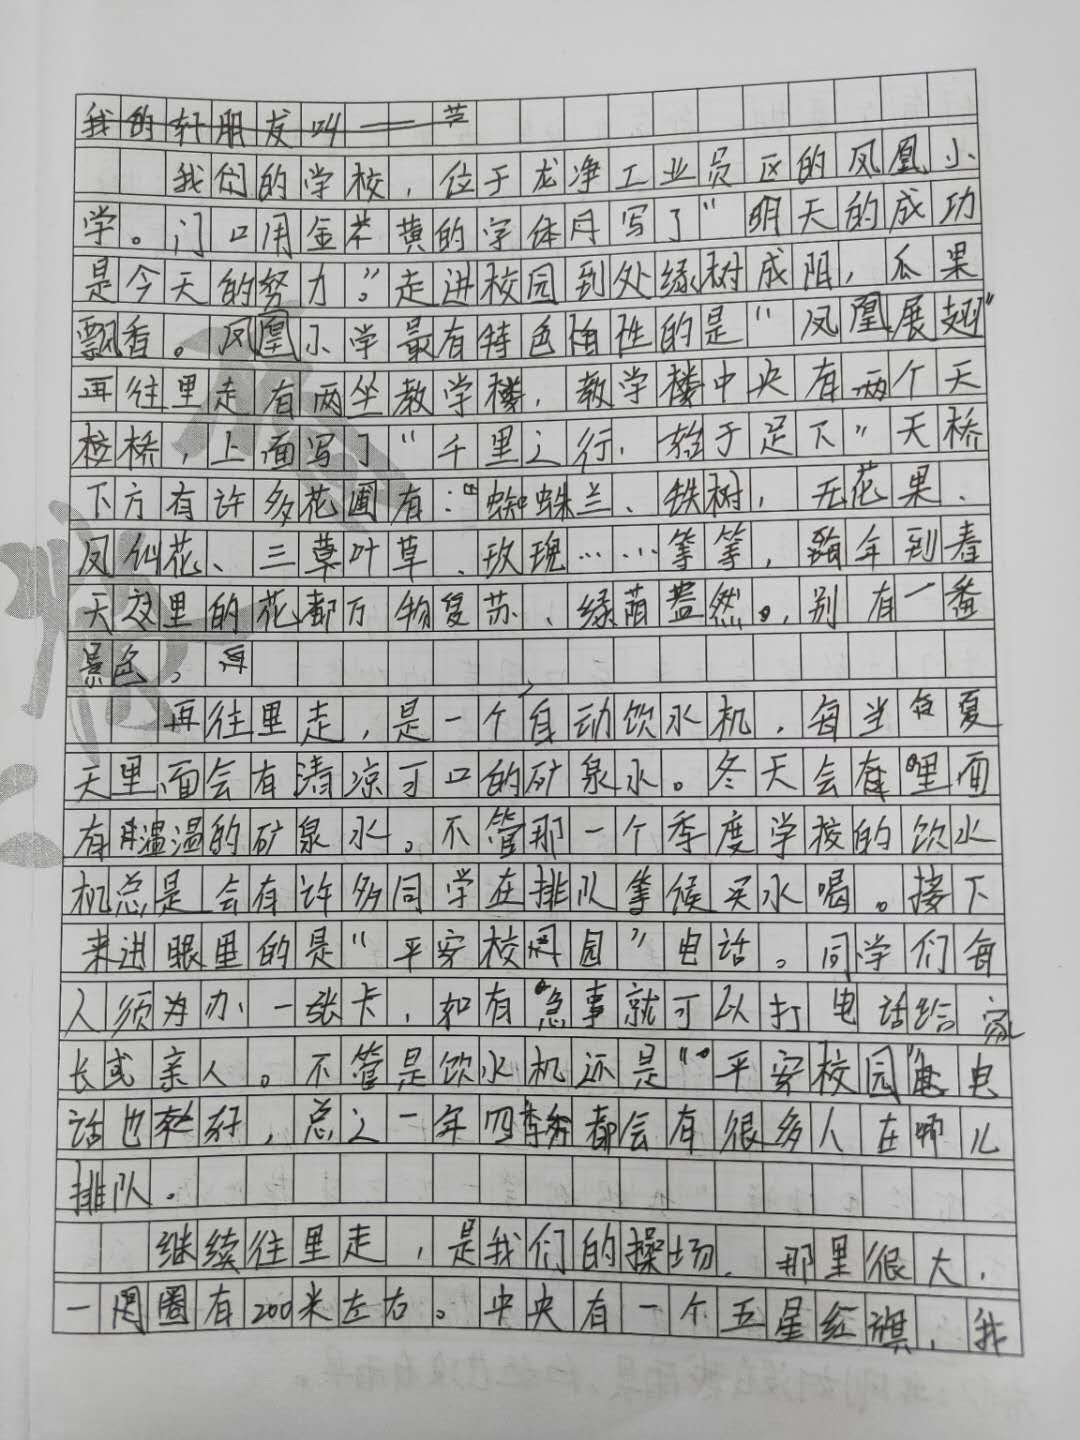 我的好朋友叫——芦
我们的学校，位于龙净工业员区的凤凰小
学。门口用金黄的字体写了“明天的成功
是今天的努力。”走进校园到处绿树成阴，瓜果
飘香。凤凰小学最有特色的是“凤凰展翅”
再往里走有两坐教学楼，教学楼中央有两个天
桥，上面写了“千里之行，始于足下”天桥
下方有许多花圃有：“蜘蛛兰、铁树，无花果、
凤仙花、三草叶草、玫瑰……等等，每年到春
天这里的花都万物复苏、绿荫盎然。，别有一番
景色。
再往里走，是一个自动饮水机，每当夏
天里面会有清凉可口的矿泉水。冬天会有里面
有温温的矿泉水。不管那一个季度学校的饮水
机总是会有许多同学在排队等候买水喝。接下
来进眼里的是“平安校园”电话。同学们每
人须为办一张卡，如有急事就可以打电话给家
长或亲人。不管是饮水机还是“平安校园”电
话也好，总之一年四季都会有很多人在那儿
排队。
继续往里走，是我们的操场、那里很大，
一圈有200米左右。中央有一个五星红旗，我